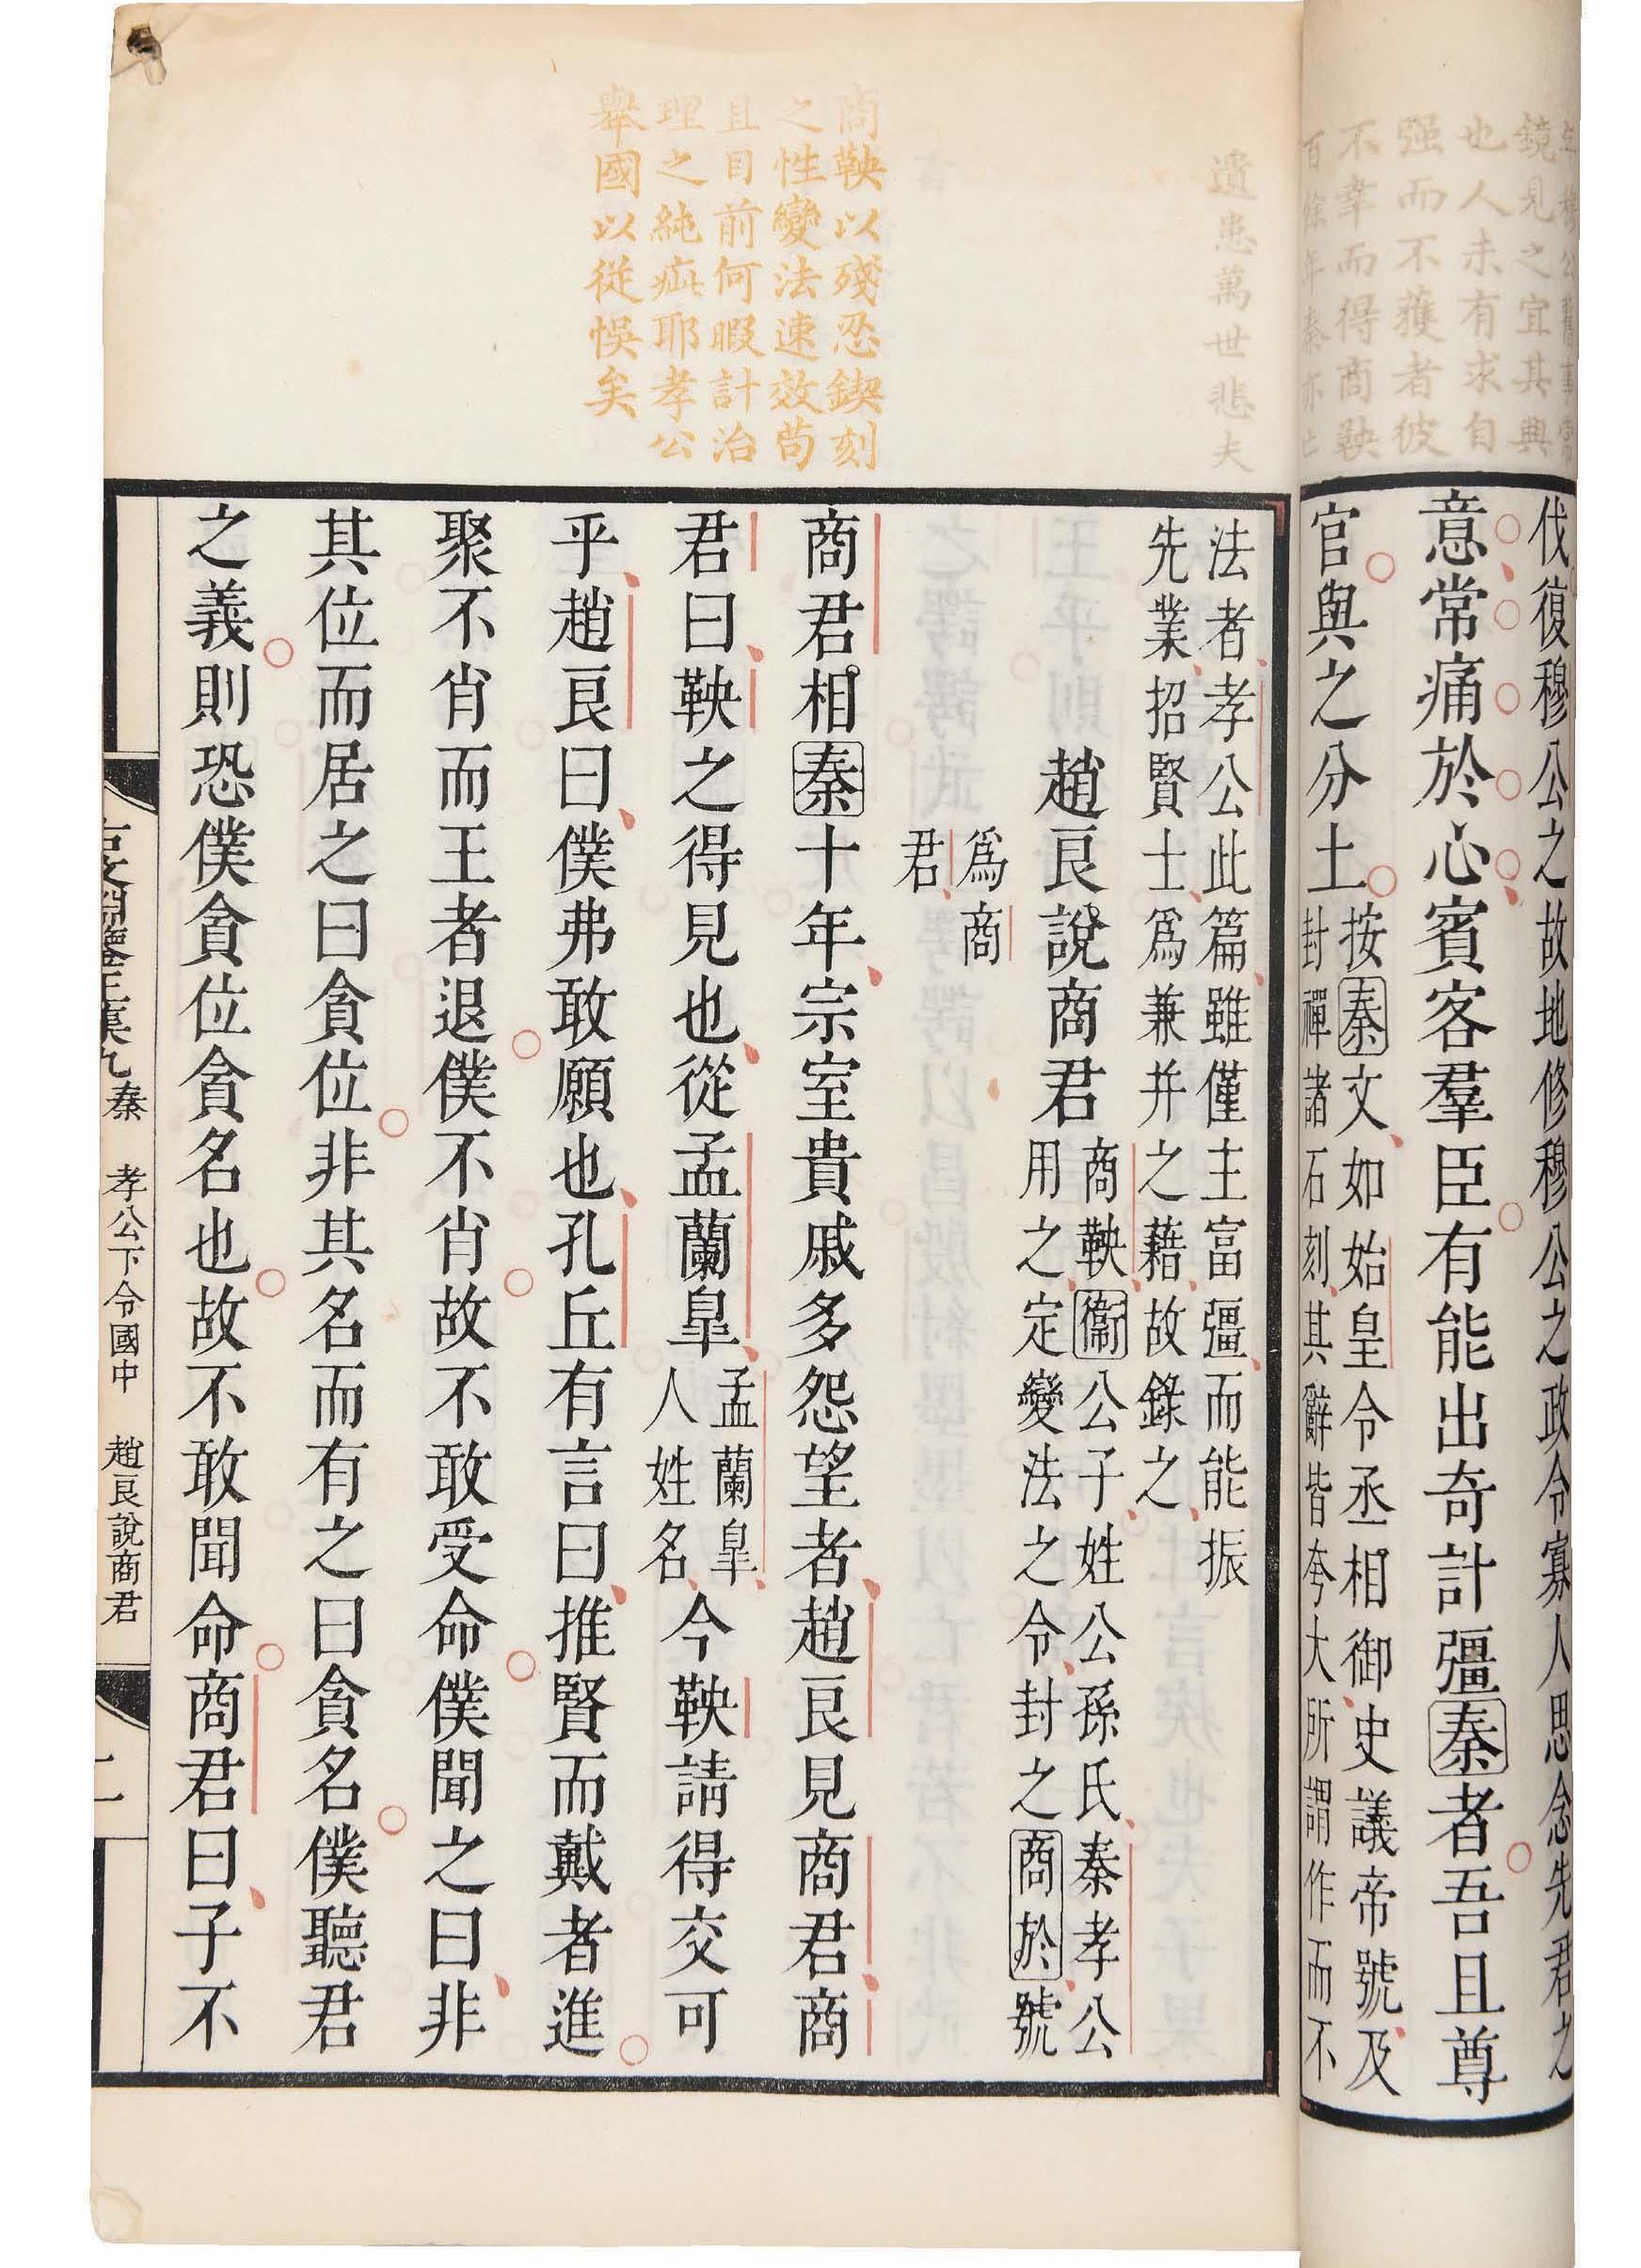 鏡見之宜其興
也人未有求自
强而不獲者彼
不幸而得商鞅
百餘年秦亦亡
伐復穆公之故地修穆公之政令寡人思念先君之
意常痛於心賓客羣臣有能出奇計彊秦者吾且尊
官與之分土
按秦文如始皇令丞相御史議帝號及
封禪諸石刻其辭皆夸大所謂作而不
遺患萬世悲夫
法者孝公此篇雖僅主富彊而能振
先業招賢士爲兼并之藉故錄之
趙良說商君
商鞅衞公子姓公孫氏秦孝公
用之定變法之令封之商於號
爲商
君
商鞅以殘忍鍥刻
之性變法速效苟
且目前何暇計治
理之純疵耶孝公
舉國以從悞矣
商君相秦十年宗室貴戚多怨望者趙良見商君商
君曰鞅之得見也從孟蘭臯
孟蘭臯
人姓名
今鞅請得交可
乎趙良曰僕弗敢願也孔丘有言曰推賢而戴者進
聚不肖而王者退僕不肖故不敢受命僕聞之曰非
其位而居之曰貪位非其名而有之曰貪名僕聽君
之義則恐僕貪位貪名也故不敢聞命商君曰子不
古文淵鑒正集九 秦 孝公下令國中 趙良說商君
二